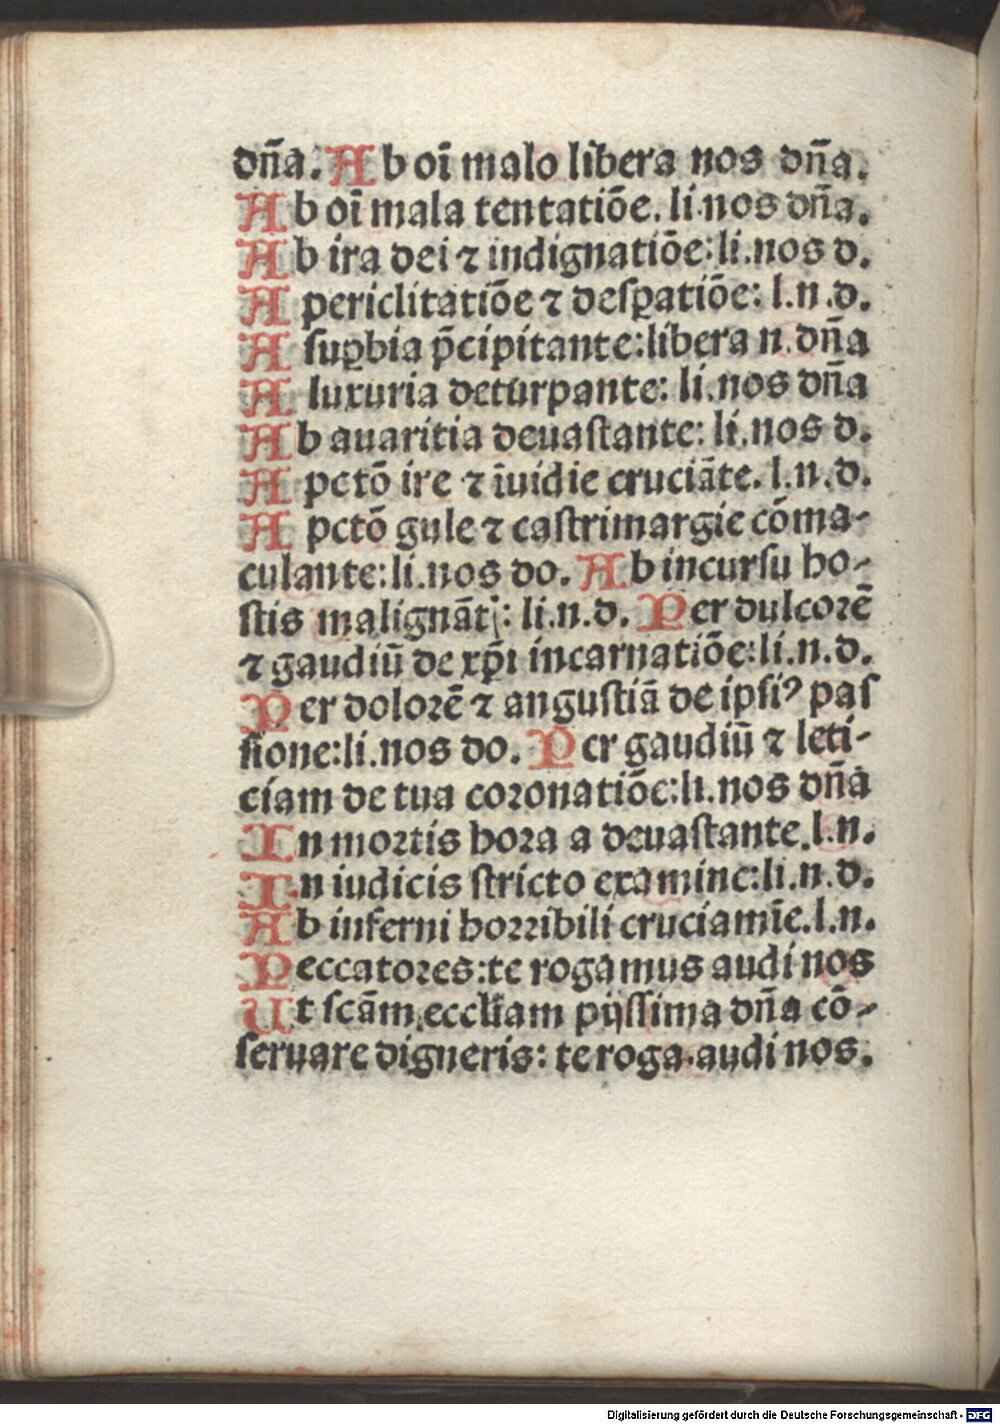 dn̄a. Ab oi̅ malo libera nos dn̄a.
Ab oi̅ mala tentatiōe. li.nos dn̄a.
Ab ira dei ⁊ indignatiōe: li.nos d.
A periclitatiōe ⁊ deſꝑatiōe: l.n.d.
A ſuꝑbia p̄cipitante: libera n. dn̄a
A luxuria deturpante: li.nos dn̄a
Ab auaritia deuaſtante: li.nos d.
A pctō ire ⁊ īuidie cruciāte. l.n.d.
A pctō gule ⁊ caſtrimargie cōma-
culante: li.nos do. Ab incurſu ho-
ſtis malignāt̄: li.n.d. Per dulcorē
⁊ gaudiū de xp̄i incarnatiōe: li.n.d.
Per dolorē ⁊ anguſtiā de ipſiꝰ paſ
ſione: li.nos do. Per gaudiū ⁊ leti-
ciam de tua coronatiōe: li.nos dn̄a
In mortis hora a deuaſtante.l.n.
In iudicis ſtricto examine: li.n.d.
Ab inferni horribili cruciamīe.l.n.
Peccatores: te rogamus audi nos
Ut ſcām eccl̄iam pijſſima dn̄a cō-
ſeruare digneris: te roga.audi nos.
Digitalisierung gefördert durch die Deutsche Forschungsgemeinschaft - DFG